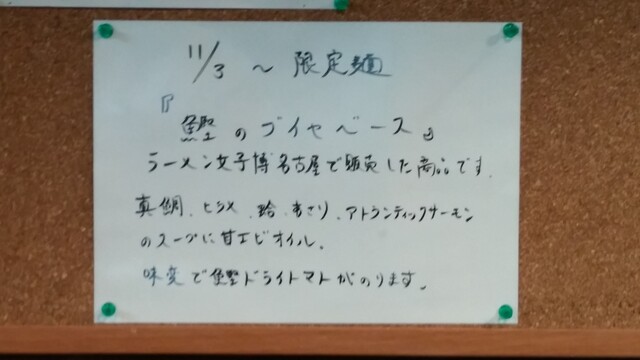 11/3 〜 限定麺
『鰹のブイヤベース』
ラーメン女子博名古屋で販売した商品です.
真鯛、ヒラメ、蛤、あさり、アトランティックサーモン
のスープに甘エビオイル.
味変で鰹ドライトマトがのります.